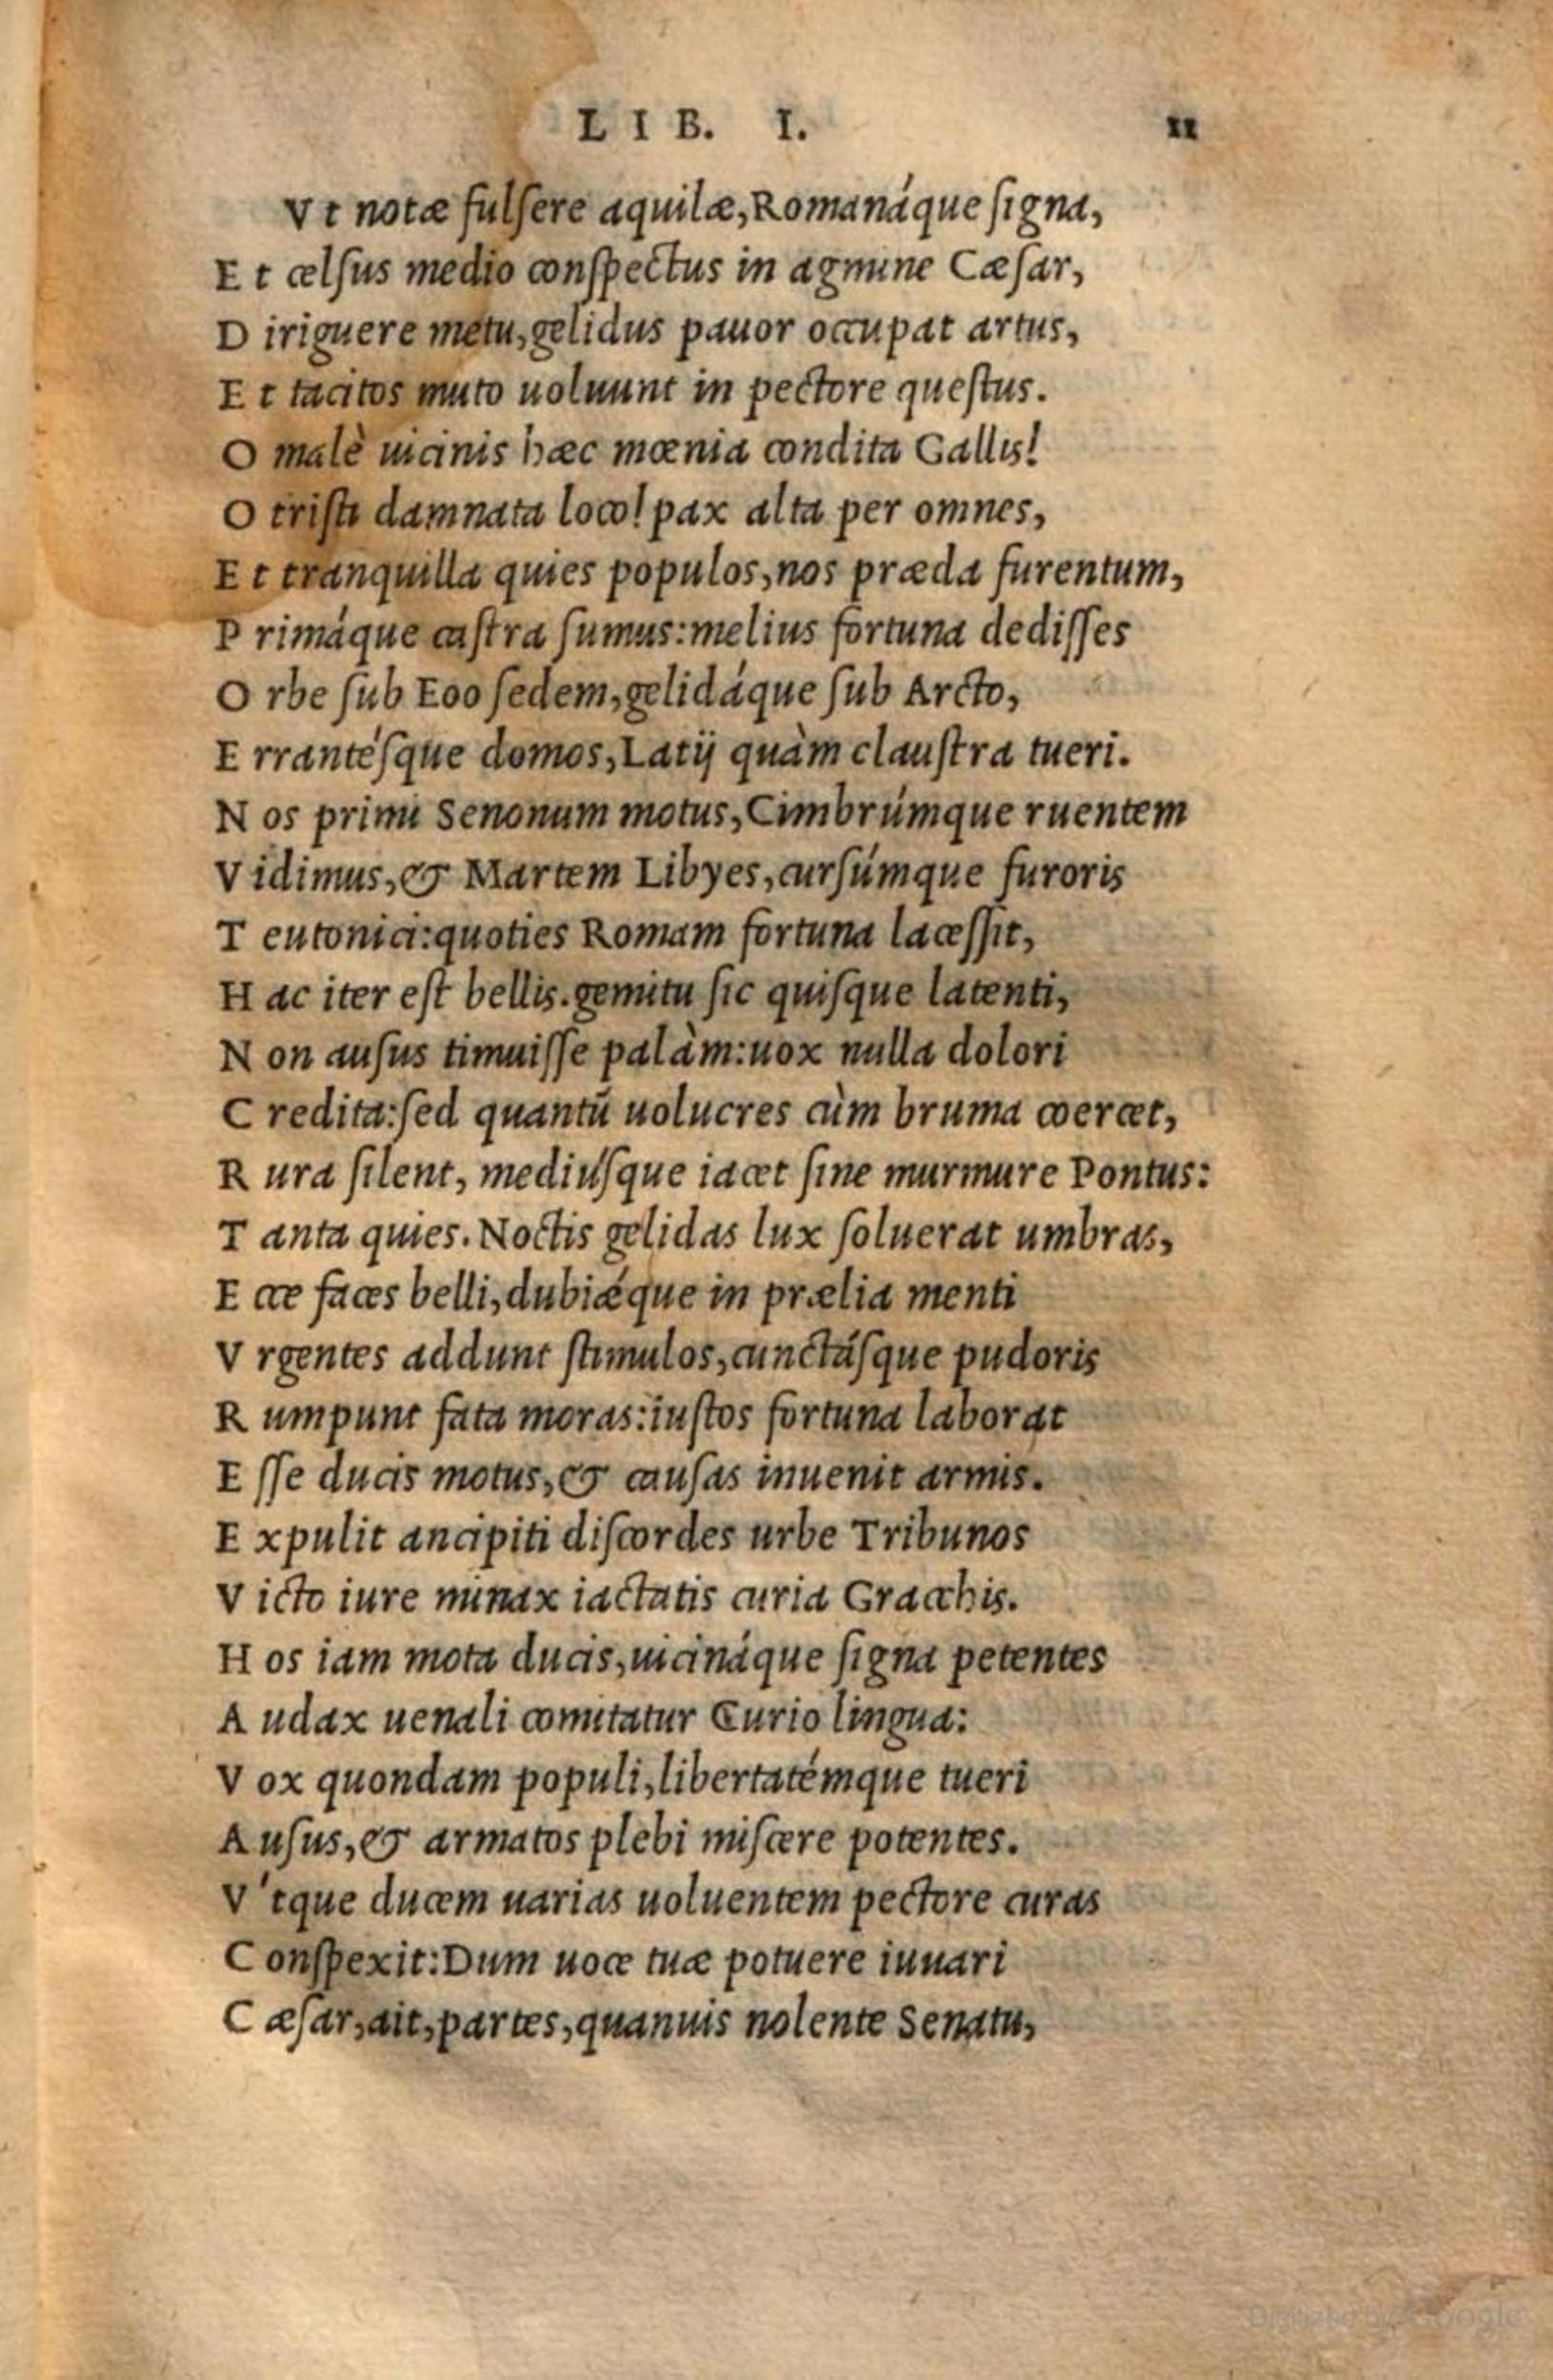 LIB. I. 11
Vt notæ fulſere aquilæ, Romanáque ſigna,
Et celſus medio conſpectus in agmine Cæſar,
Diriguere metu, gelidus pauor occupat artus,
Et tacitos muto uoluunt in pectore queſtus.
O malè uicinis hæc mœnia condita Gallis!
O triſti damnata loco! pax alta per omnes,
Et tranquilla quies populos, nos præda furentum,
Primáque caſtra ſumus: melius fortuna dediſſes
Orbe ſub Eoo ſedem, gelidáque ſub Arcto,
Errantéſque domos, Latij quàm clauſtra tueri.
Nos primi Senonum motus, Cimbrúmque ruentem
Vidimus, & Martem Libyes, curſúmque furoris
Teutonici: quoties Romam fortuna laceſſit,
Hac iter eſt bellis. gemitu ſic quiſque latenti,
Non auſus timuiſſe palàm: uox nulla dolori
Credita: ſed quantū uolucres cùm bruma coercet,
Rura ſilent, mediúſque iacet ſine murmure Pontus:
Tanta quies. Noctis gelidas lux ſoluerat umbras,
Ecce faces belli, dubiǽque in prælia menti
Vrgentes addunt ſtimulos, cunctáſque pudoris
Rumpunt fata moras: iuſtos fortuna laborat
Eſſe ducis motus, & cauſas inuenit armis.
Expulit ancipiti diſcordes urbe Tribunos
Victo iure minax iactatis curia Gracchis.
Hos iam mota ducis, uicináque ſigna petentes
Audax uenali comitatur Curio lingua:
Vox quondam populi, libertatémque tueri
Auſus, & armatos plebi miſcere potentes.
V'tque ducem uarias uoluentem pectore curas
Conſpexit: Dum uoce tuæ potuere iuuari
Cæſar, ait, partes, quanuis nolente Senatu,
Digitized by Google